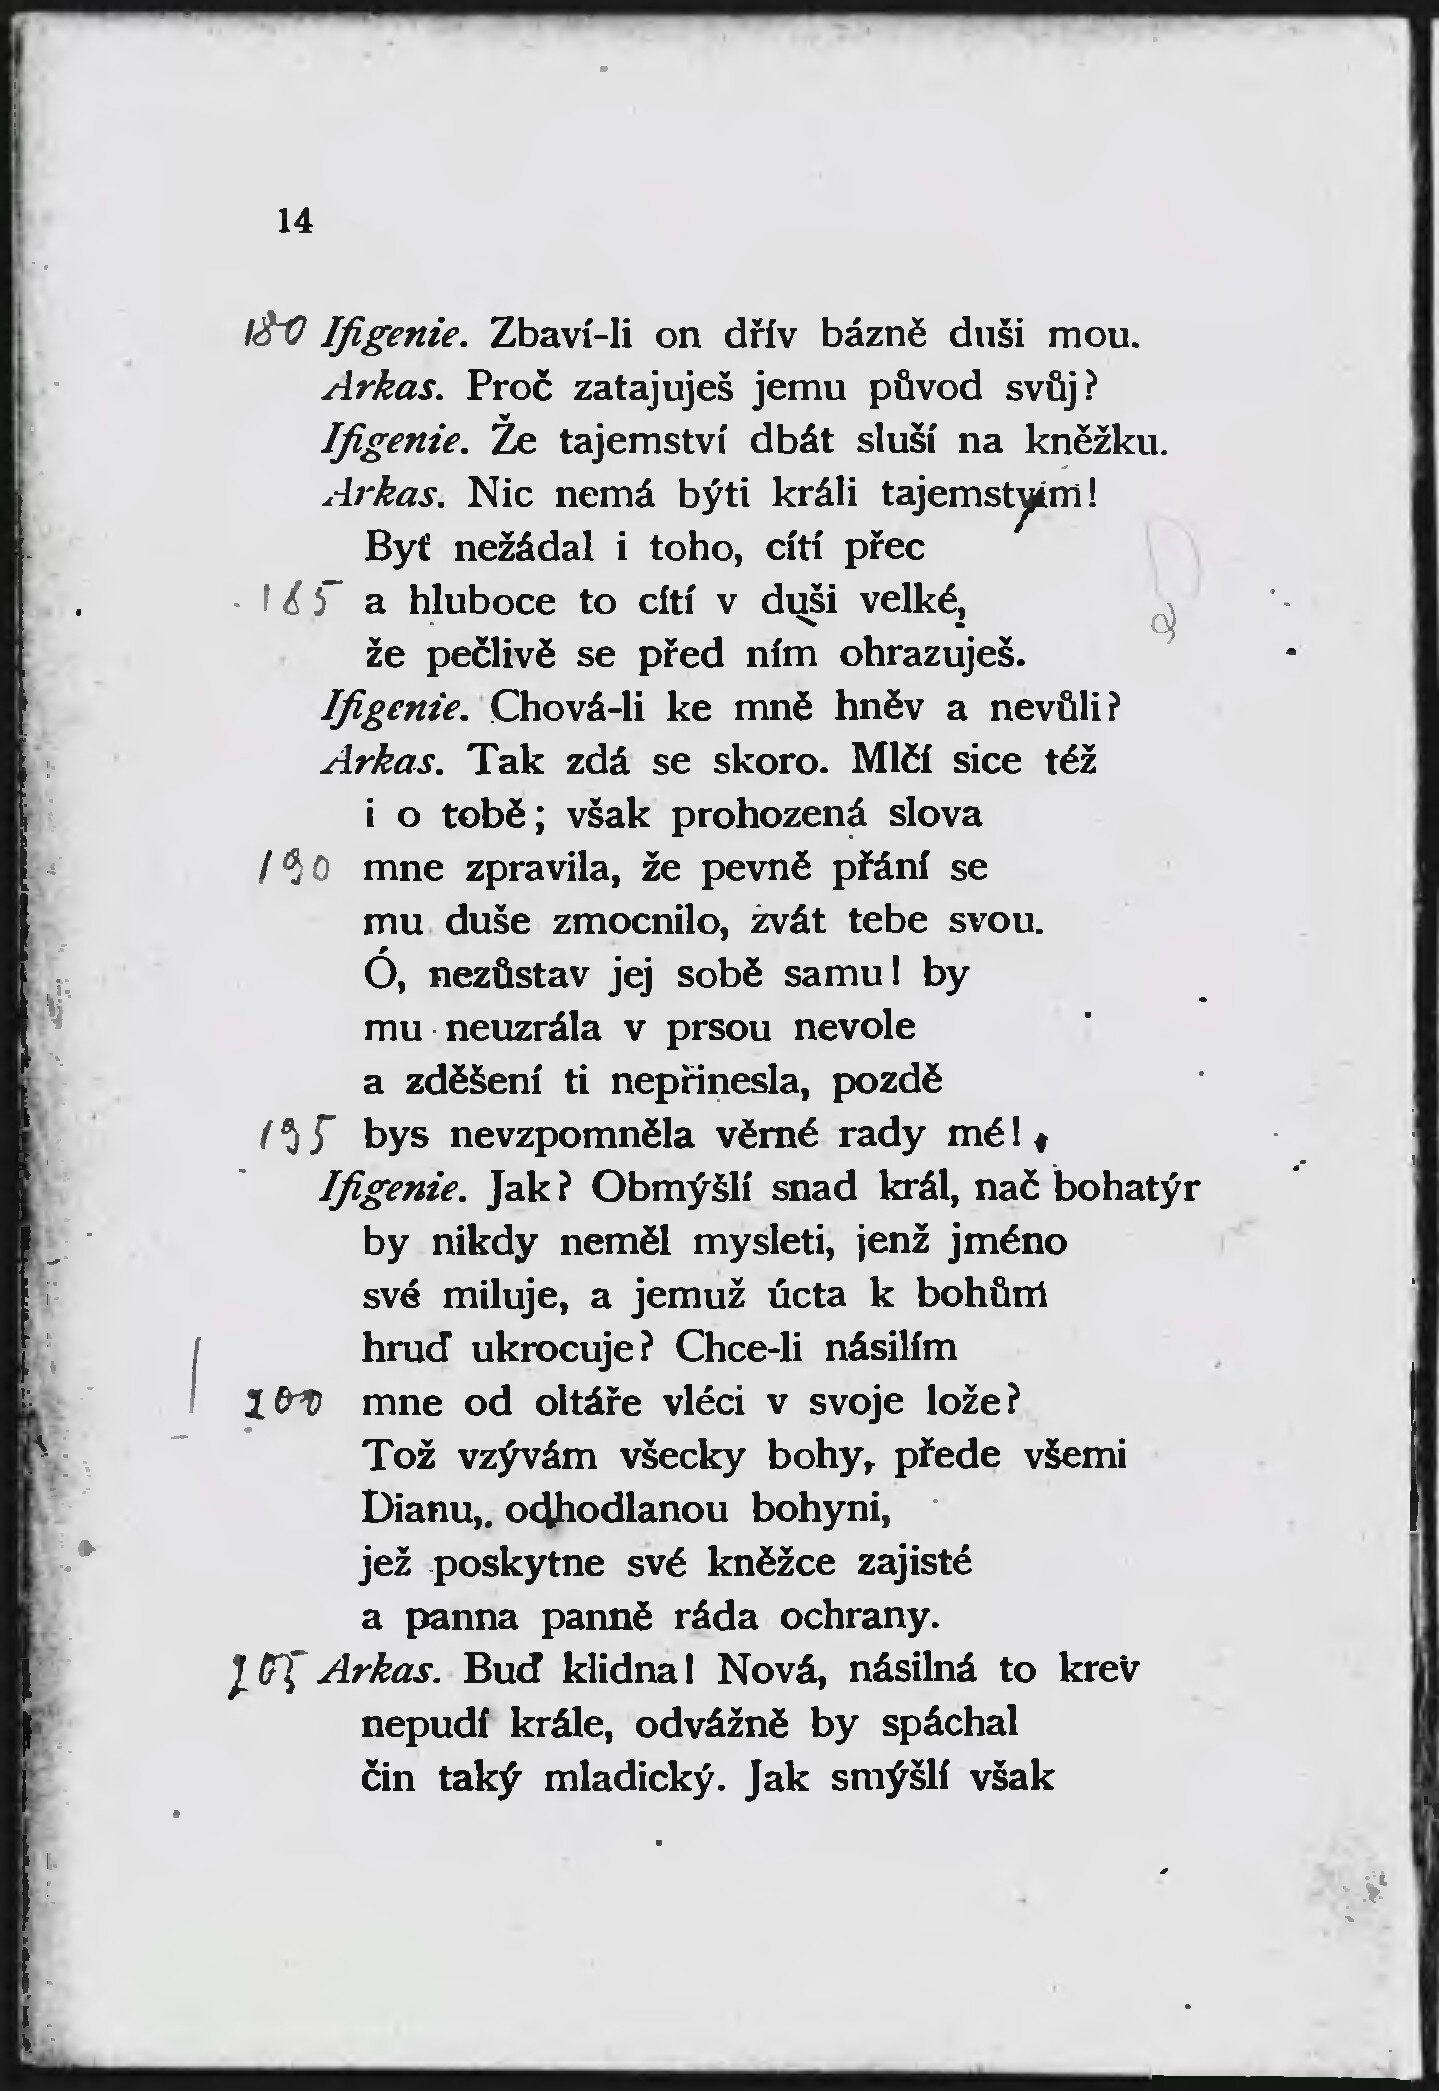 14
180 Ifigenie. Zbaví-li on dřív bázně duši mou.
Arkas. Proč zatajuješ jemu původ svůj?
Ifigenie. Že tajemství dbát sluší na kněžku.
Arkas. Nic nemá býti králi tajemstvím!
Byť nežádal i toho, cítí přec
185 a hluboce to cítí v duši velké,
že pečlivě se před ním ohrazuješ.
Ifigenie. Chová-li ke mně hněv a nevůli?
Arkas. Tak zdá se skoro. Mlčí sice též
i o tobě; však prohozená slova
190 mne zpravila, že pevně přání se
mu duše zmocnilo, zvát tebe svou.
Ó, nezůstav jej sobě samu! by
mu neuzrála v prsou nevole
a zděšení ti nepřinesla, pozdě
195 bys nevzpomněla věrné rady mé!
Ifigenie. Jak? Obmýšlí snad král, nač bohatýr
by nikdy neměl mysleti, jenž jméno
své miluje, a jemuž úcta k bohům
hruď ukrocuje? Chce-li násilím
200 mne od oltáře vléci v svoje lože?
Tož vzývám všecky bohy, přede všemi
Dianu, odhodlanou bohyni,
jež poskytne své kněžce zajisté
a panna panně ráda ochrany.
205 Arkas. Buď klidna! Nová, násilná to krev
nepudí krále, odvážně by spáchal
čin taký mladický. Jak smýšlí však